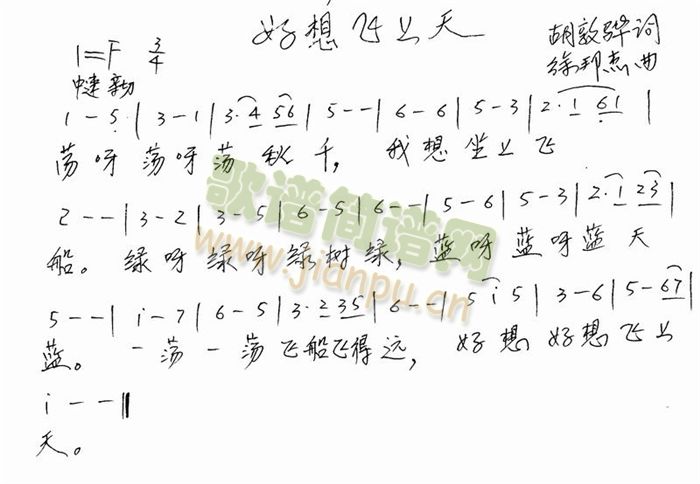 好想飞上天
1=F 3/4
胡敦骅词
中速 亲切
徐邦杰曲
1 - 5 | 3 - 1 | 3· 4 56 | 5 - - | 6 - 6 | 5 - 3 | 2· 1 61 |
荡呀荡呀荡秋千，我想坐上飞
2 - - | 3 - 2 | 3 - 5 | 6 - 5 | 6 - - | 5 - 6 | 5 - 3 | 2· 1 23 |
船。绿呀绿呀绿树绿，蓝呀蓝呀蓝天
5 - - | i - 7 | 6 - 5 | 3· 2 35 | 6 - - | 5 i 5 | 3 - 6 | 5 - 67 |
蓝。一荡一荡飞船飞得远，好想好想飞上
i - - ‖
天。
歌谱简谱网
www.jianpu.cn